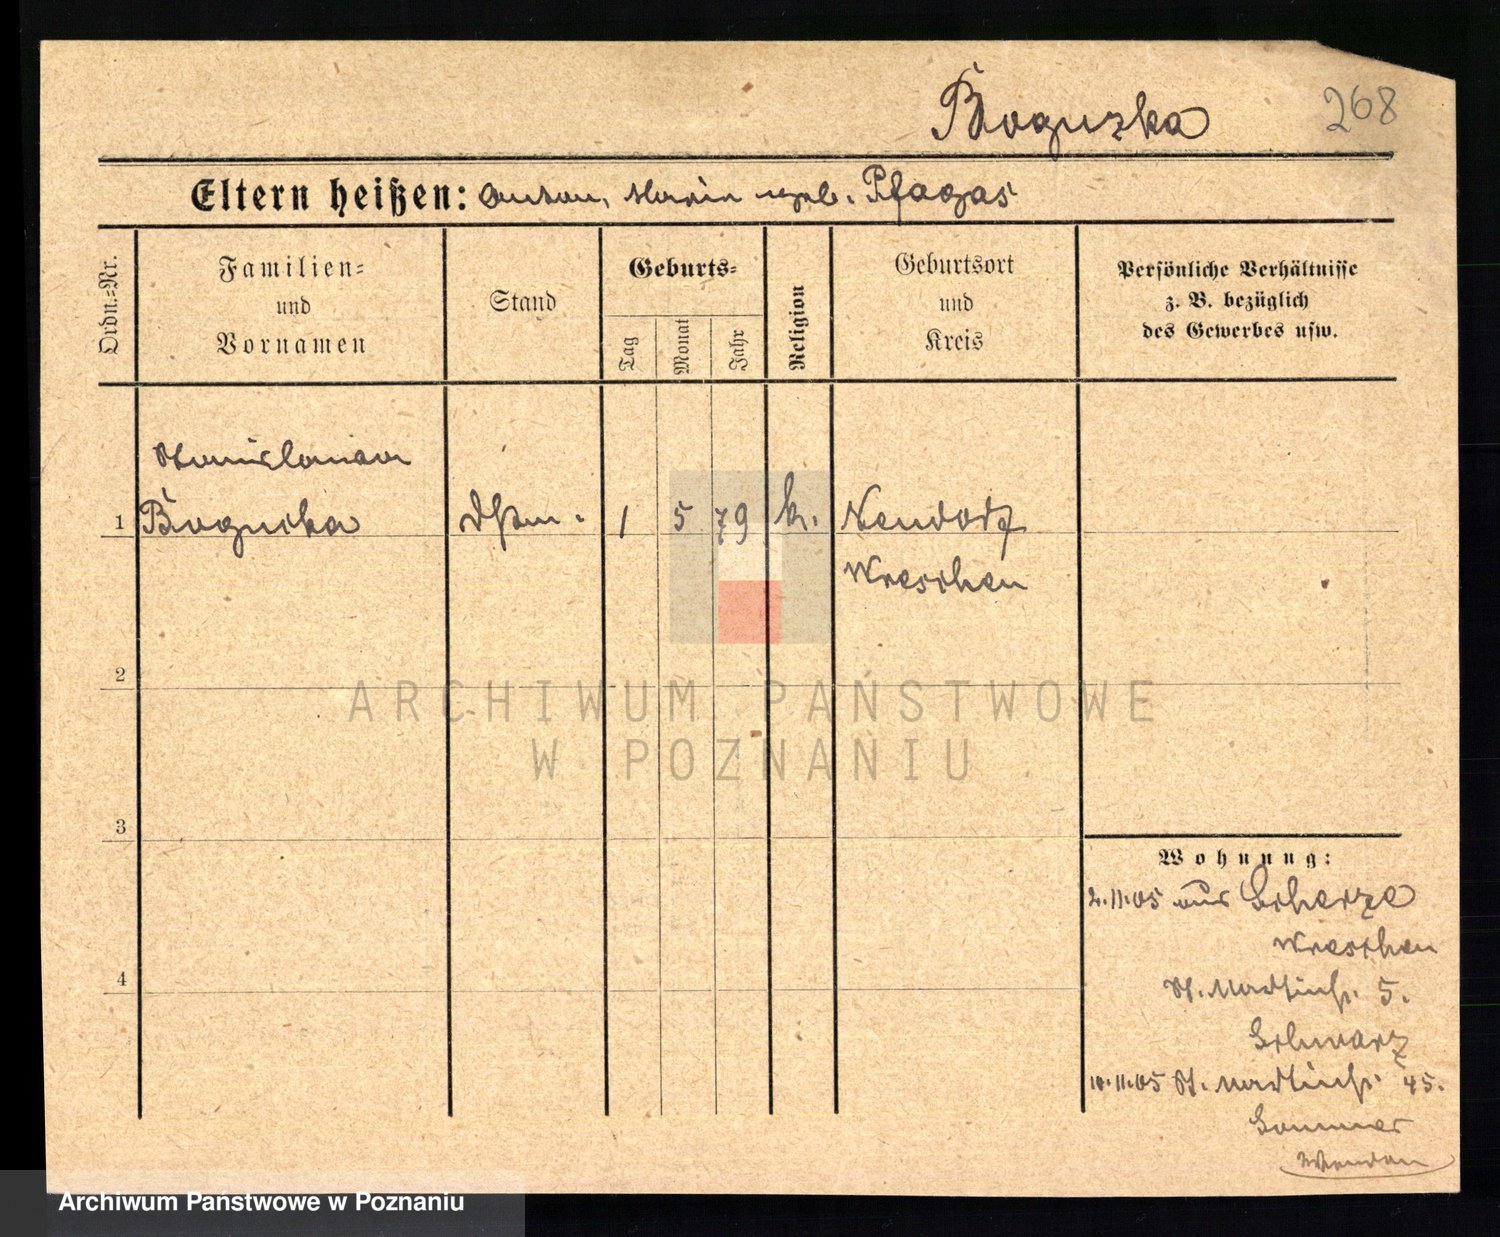 Boguzka 268
Eltern heißen: Anton, Maria geb. Pfagas
Ordn.-Nr.
Familien-
und
Vornamen
Stand
Geburts-
Tag
Monat
Jahr
Religion
Geburtsort
und
Kreis
Persönliche Verhältnisse
z. B. bezüglich
des Gewerbes usw.
Stanislawa
1 Boguska 1 5 79 k. Neudorf
Wreschen
2
ARCHIWUM PAŃSTWOWE
W POZNANIU
3
4
Wohnung:
2.11.05 aus
Wreschen
St. Martinstr. 5.
Schwarz
10.11.05 St. Martinstr. 45.
Sommer
Wenden
Archiwum Państwowe w Poznaniu